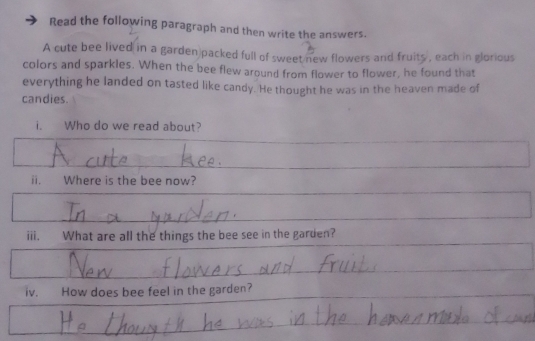 → Read the following paragraph and then write the answers.
A cute bee lived in a garden packed full of sweet new flowers and fruits, each in glorious
colors and sparkles. When the bee flew around from flower to flower, he found that
everything he landed on tasted like candy. He thought he was in the heaven made of
candies.
i. Who do we read about?
A cute bee.
ii. Where is the bee now?
In a garden.
iii. What are all the things the bee see in the garden?
New flowers and fruit
iv. How does bee feel in the garden?
He though he was in the heaven made of